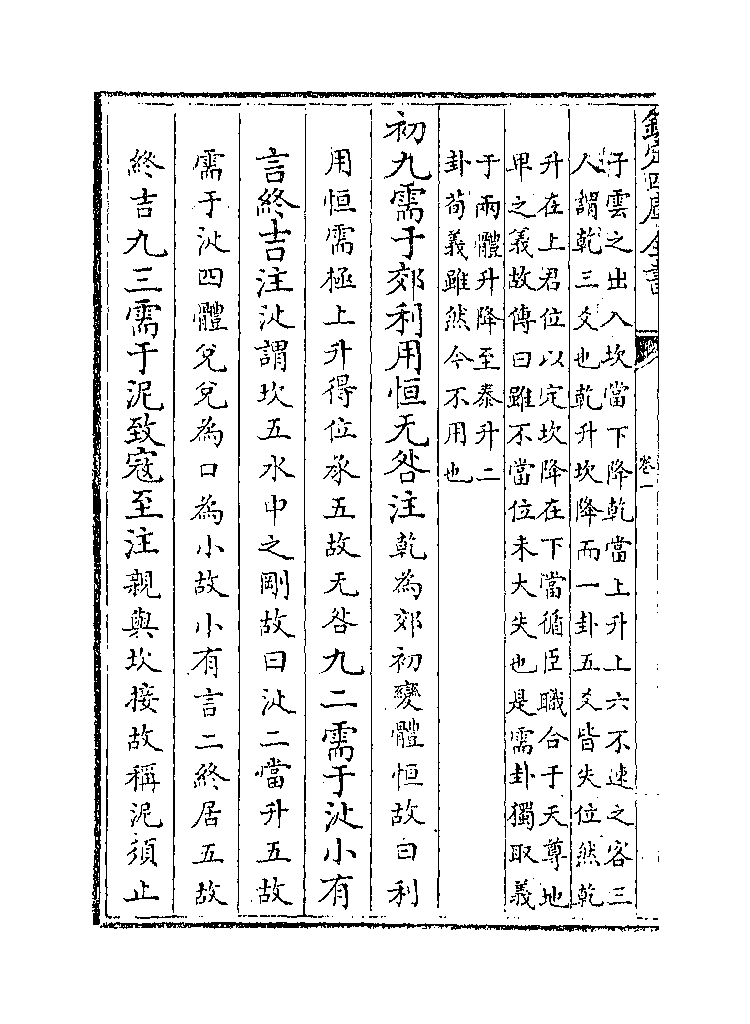 欽定四庫全書
卷一
于雲之出入坎當下降乾當上升上六不速之客三
人謂乾三爻也乾升坎降而一卦五爻皆失位然乾
升在上君位以定坎降在下當循臣職合于天尊地
卑之義故傳曰雖不當位未大失也是需卦獨取義
于兩體升降至泰升二
卦荀義雖然今不用也
初九需于郊利用恒无咎注乾為郊初變體恒故曰利
用恒需極上升得位承五故无咎九二需于沚小有
言終吉注沚謂坎五水中之剛故曰沚二當升五故
需于沚四體兌兌為口為小故小有言二終居五故
終吉九三需于泥致寇至注親與坎接故稱泥須止